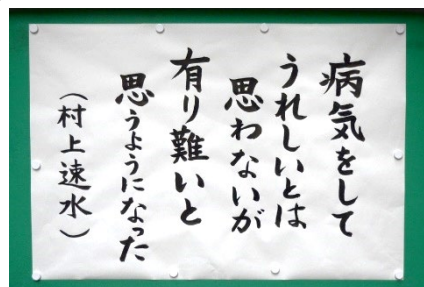 病気をして
うれしいとは
思わないが
有り難いと
思うようになった
（村上速水）